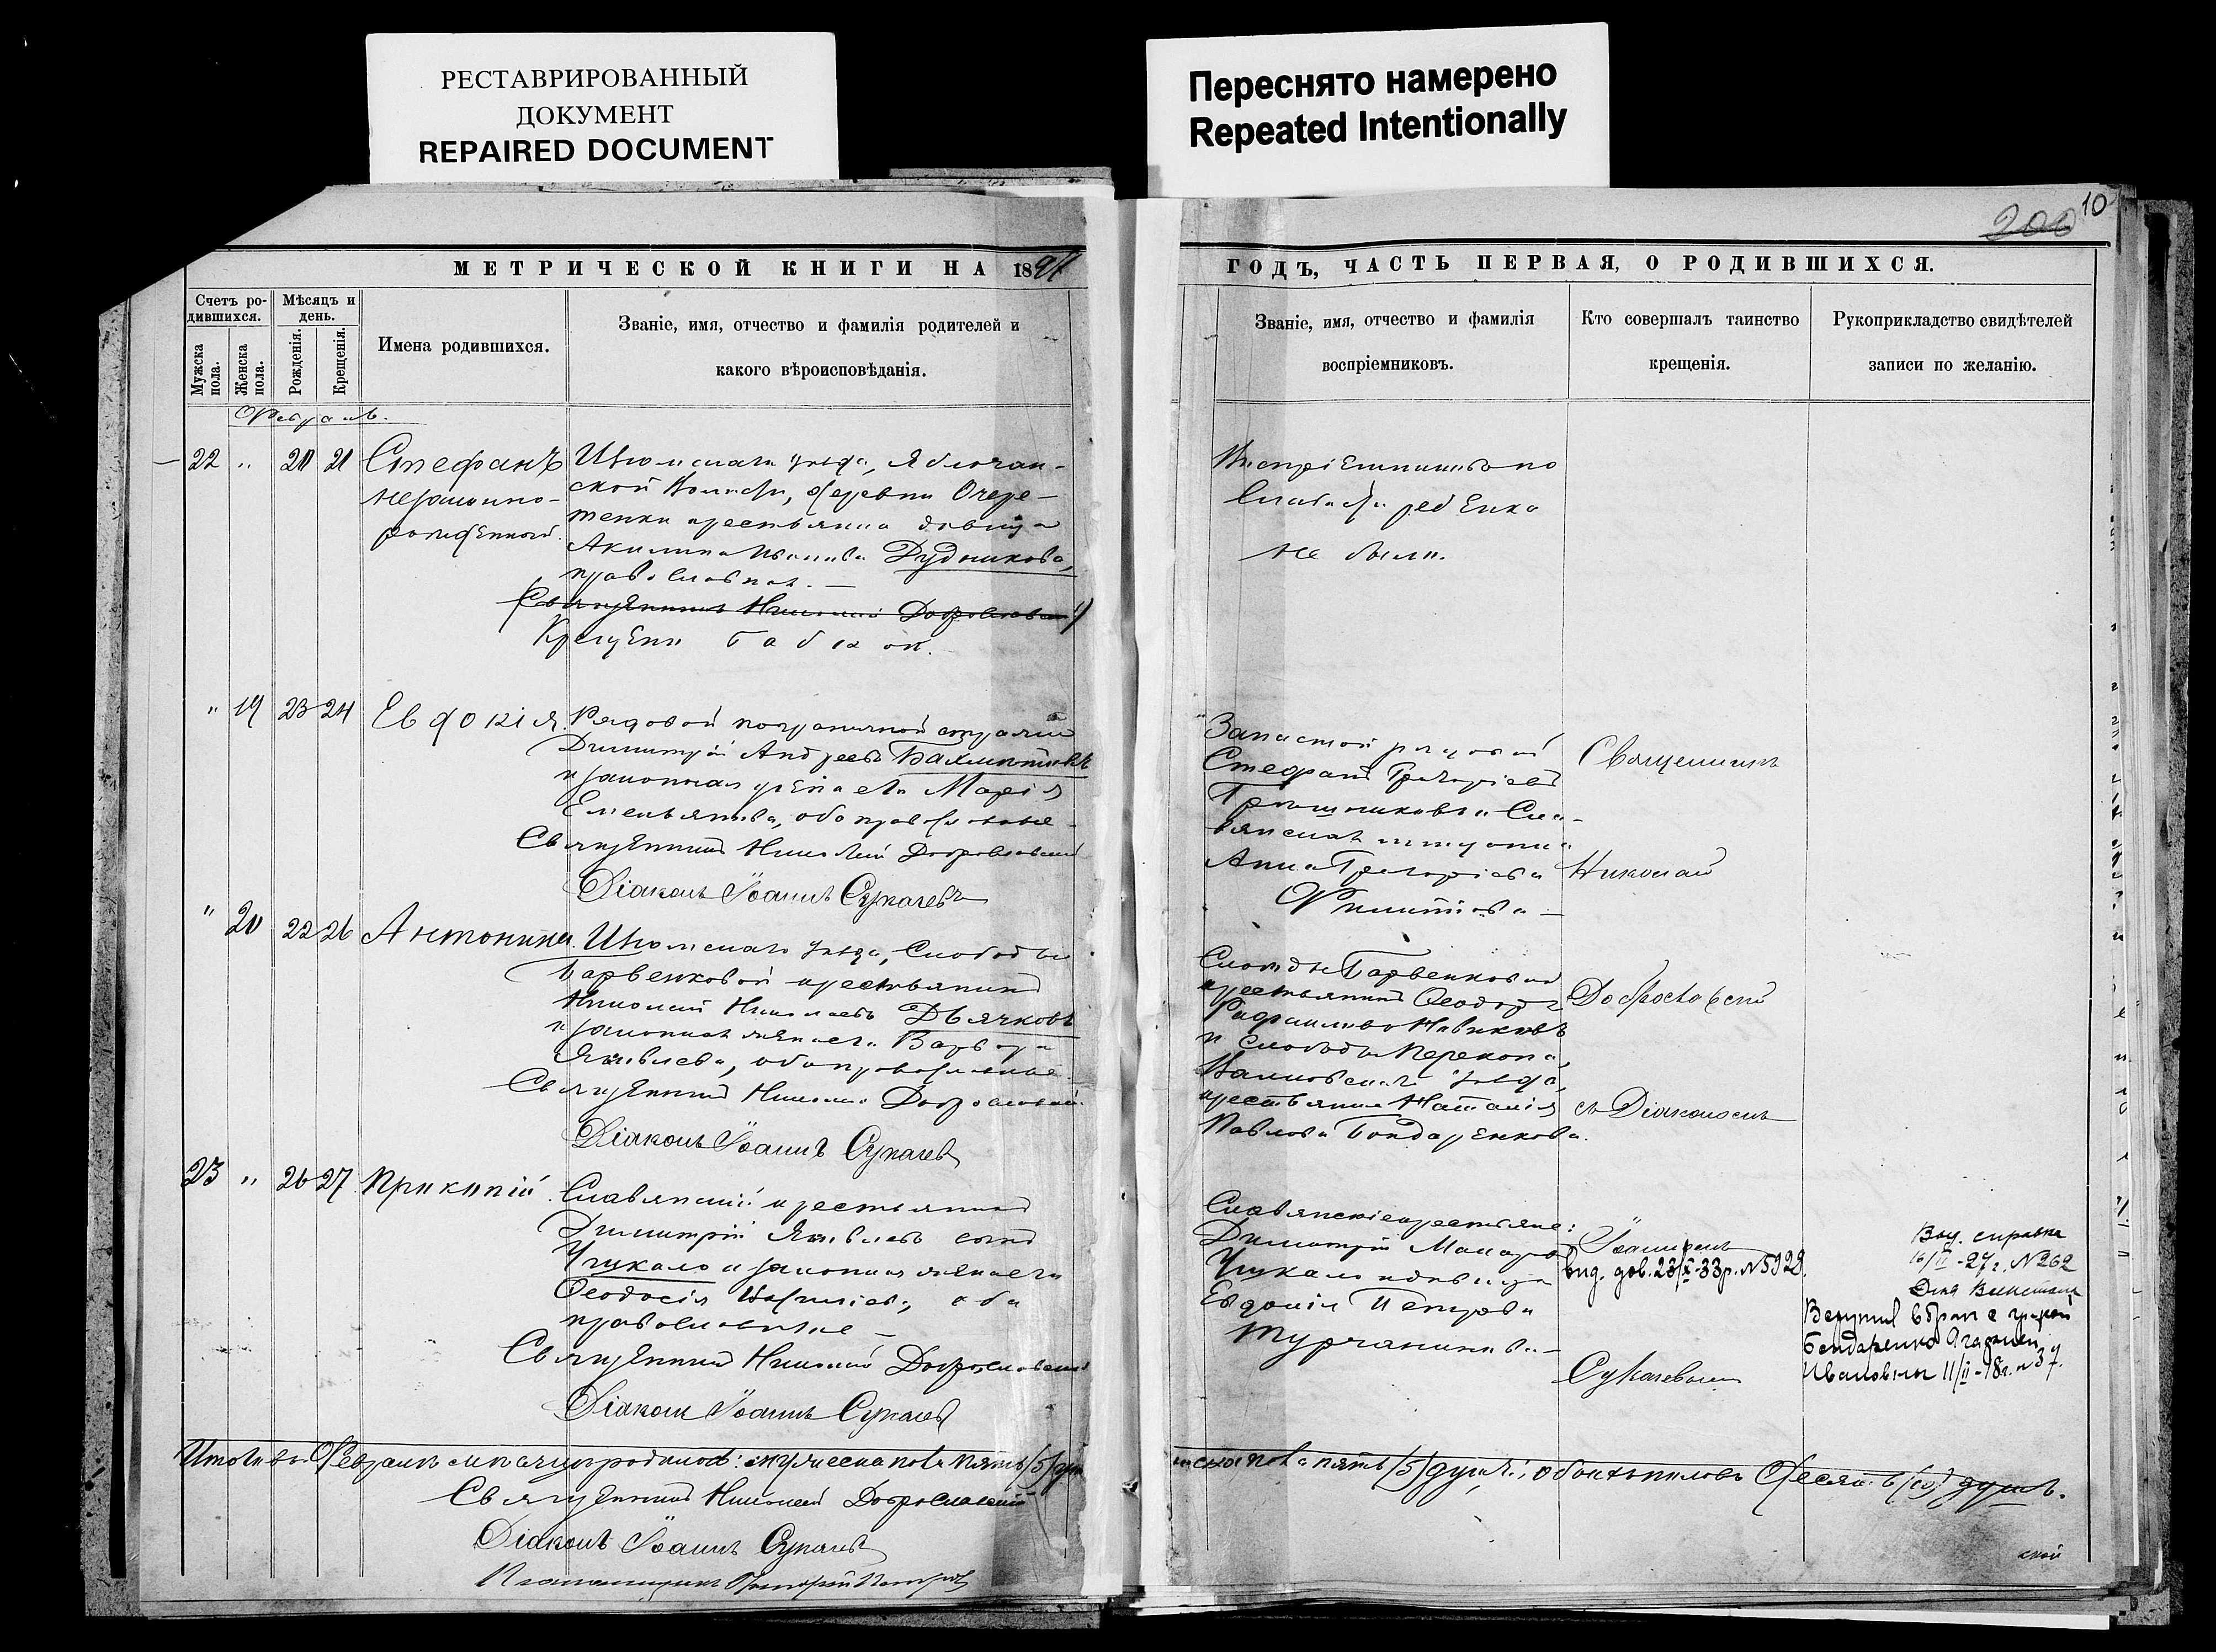 РЕСТАВРИРОВАННЫЙ
ДОКУМЕНТ
REPAIRED DOCUMENT
Переснято намерено
Repeated Intentionally
200 10
МЕТРИЧЕСКОЙ КНИГИ НА 189
Счетъ ро-
дившихся.
Мужска
пола.
Женска
пола.
Мѣсяцъ и
день.
Рожденія.
Крещенія.
Имена родившихся.
Званіе, имя, отчество и фамилія родителей и
какого вѣроисповѣданія.
Февраль.
22 " 20 21 Стефанъ
незаконно-
рожденный.
Изюмскаго уѣзда,
ской Волости, деревни Очере-
крестьянка девица
Акилина Иванова Дудникова,
православная. —
Священникъ Николай Доброславскій
Крещенъ бабкой.
" 19 23 24 Евдокія.
Рядовой пограничной стражи
Димитрій Андреевъ
и законная жена его Марія
Емельянова, оба православные
Священникъ Николай Доброславскій
Діаконъ Іоаннъ Сукачевъ
" 20 22 26 Антонина.
Изюмскаго уѣзда, Слободы
Барвенковой крестьянинъ
Николай Николаевъ Дьячковъ
и законная жена его Варвара
Яковлева, оба православные
Священникъ Николай Доброславскій
Діаконъ Іоаннъ Сукачевъ
23 " 26 27 Прокопій.
Славянскій крестьянинъ
Димитрій Яковлевъ сынъ
Чукало и законная жена его
Феодосія оба
православные —
Священникъ Николай Доброславскій
Діаконъ Іоаннъ Сукачевъ
Итого въ Февралѣ мѣсяцѣ родилось: мужеска пола пять (5) душ
Священникъ Николай Доброславскій
Діаконъ Іоаннъ Сукачевъ
ГОДЪ, ЧАСТЬ ПЕРВАЯ, О РОДИВШИХСЯ.
Званіе, имя, отчество и фамилія
воспріемниковъ.
Кто совершалъ таинство
крещенія.
Рукоприкладство свидѣтелей
записи по желанію.
Воспріемниковъ по
слабости ребенка
не было.
Запасной рядовой
Стефанъ Григоріевъ
и Сла-
вянская
Анна Григоріева
Филиппова —
Священникъ
Николай
Слободы Барвенковой
крестьянинъ Феодоръ
Новиковъ
и слободы Перекопа,
Валковскаго уѣзда,
крестьянка Наталія
Павлова Бондаренкова.
Доброславскій
съ Діакономъ
Славянскіе крестьяне:
Димитрій Макаровъ
Чукало и девица
Евдокія Петрова
Турчанинова —
Іоанномъ
вид. дов. 23/X-33р. №5929.
Сукачевымъ
Выд. справка
16/II-27г. №262
Вступил в брак с гражд
Бондаренко Агафией
Ивановны 11/II-18г. №37.
женска пола пять (5) душъ; обоихъ половъ десять (10) душъ.